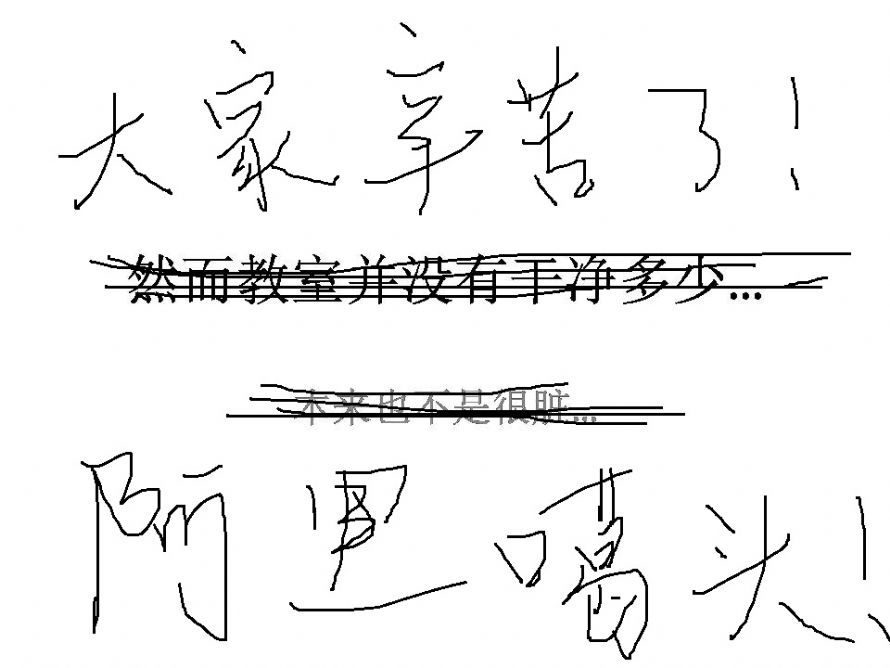 大家辛苦了!
然而教室并没有干净多少...
本来也不是很脏...
阿里噶头!